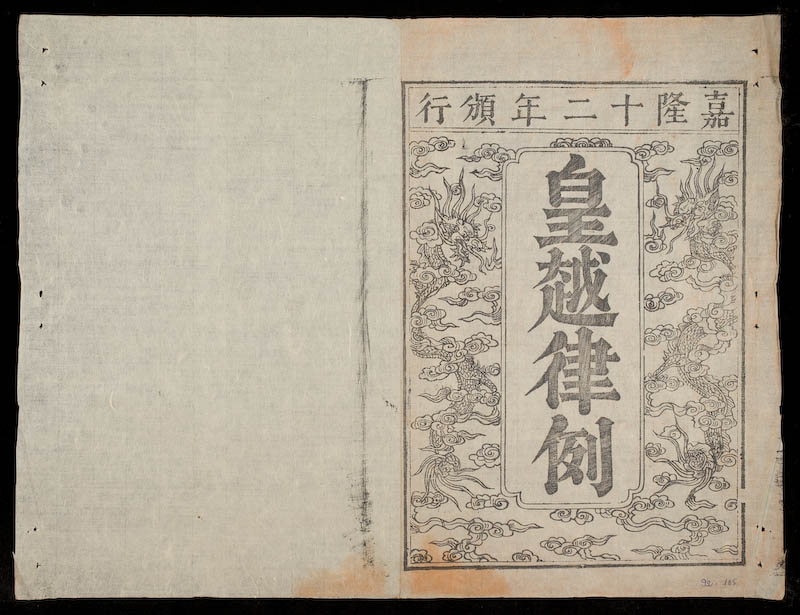 嘉隆十二年頒行
皇越律例
92-105